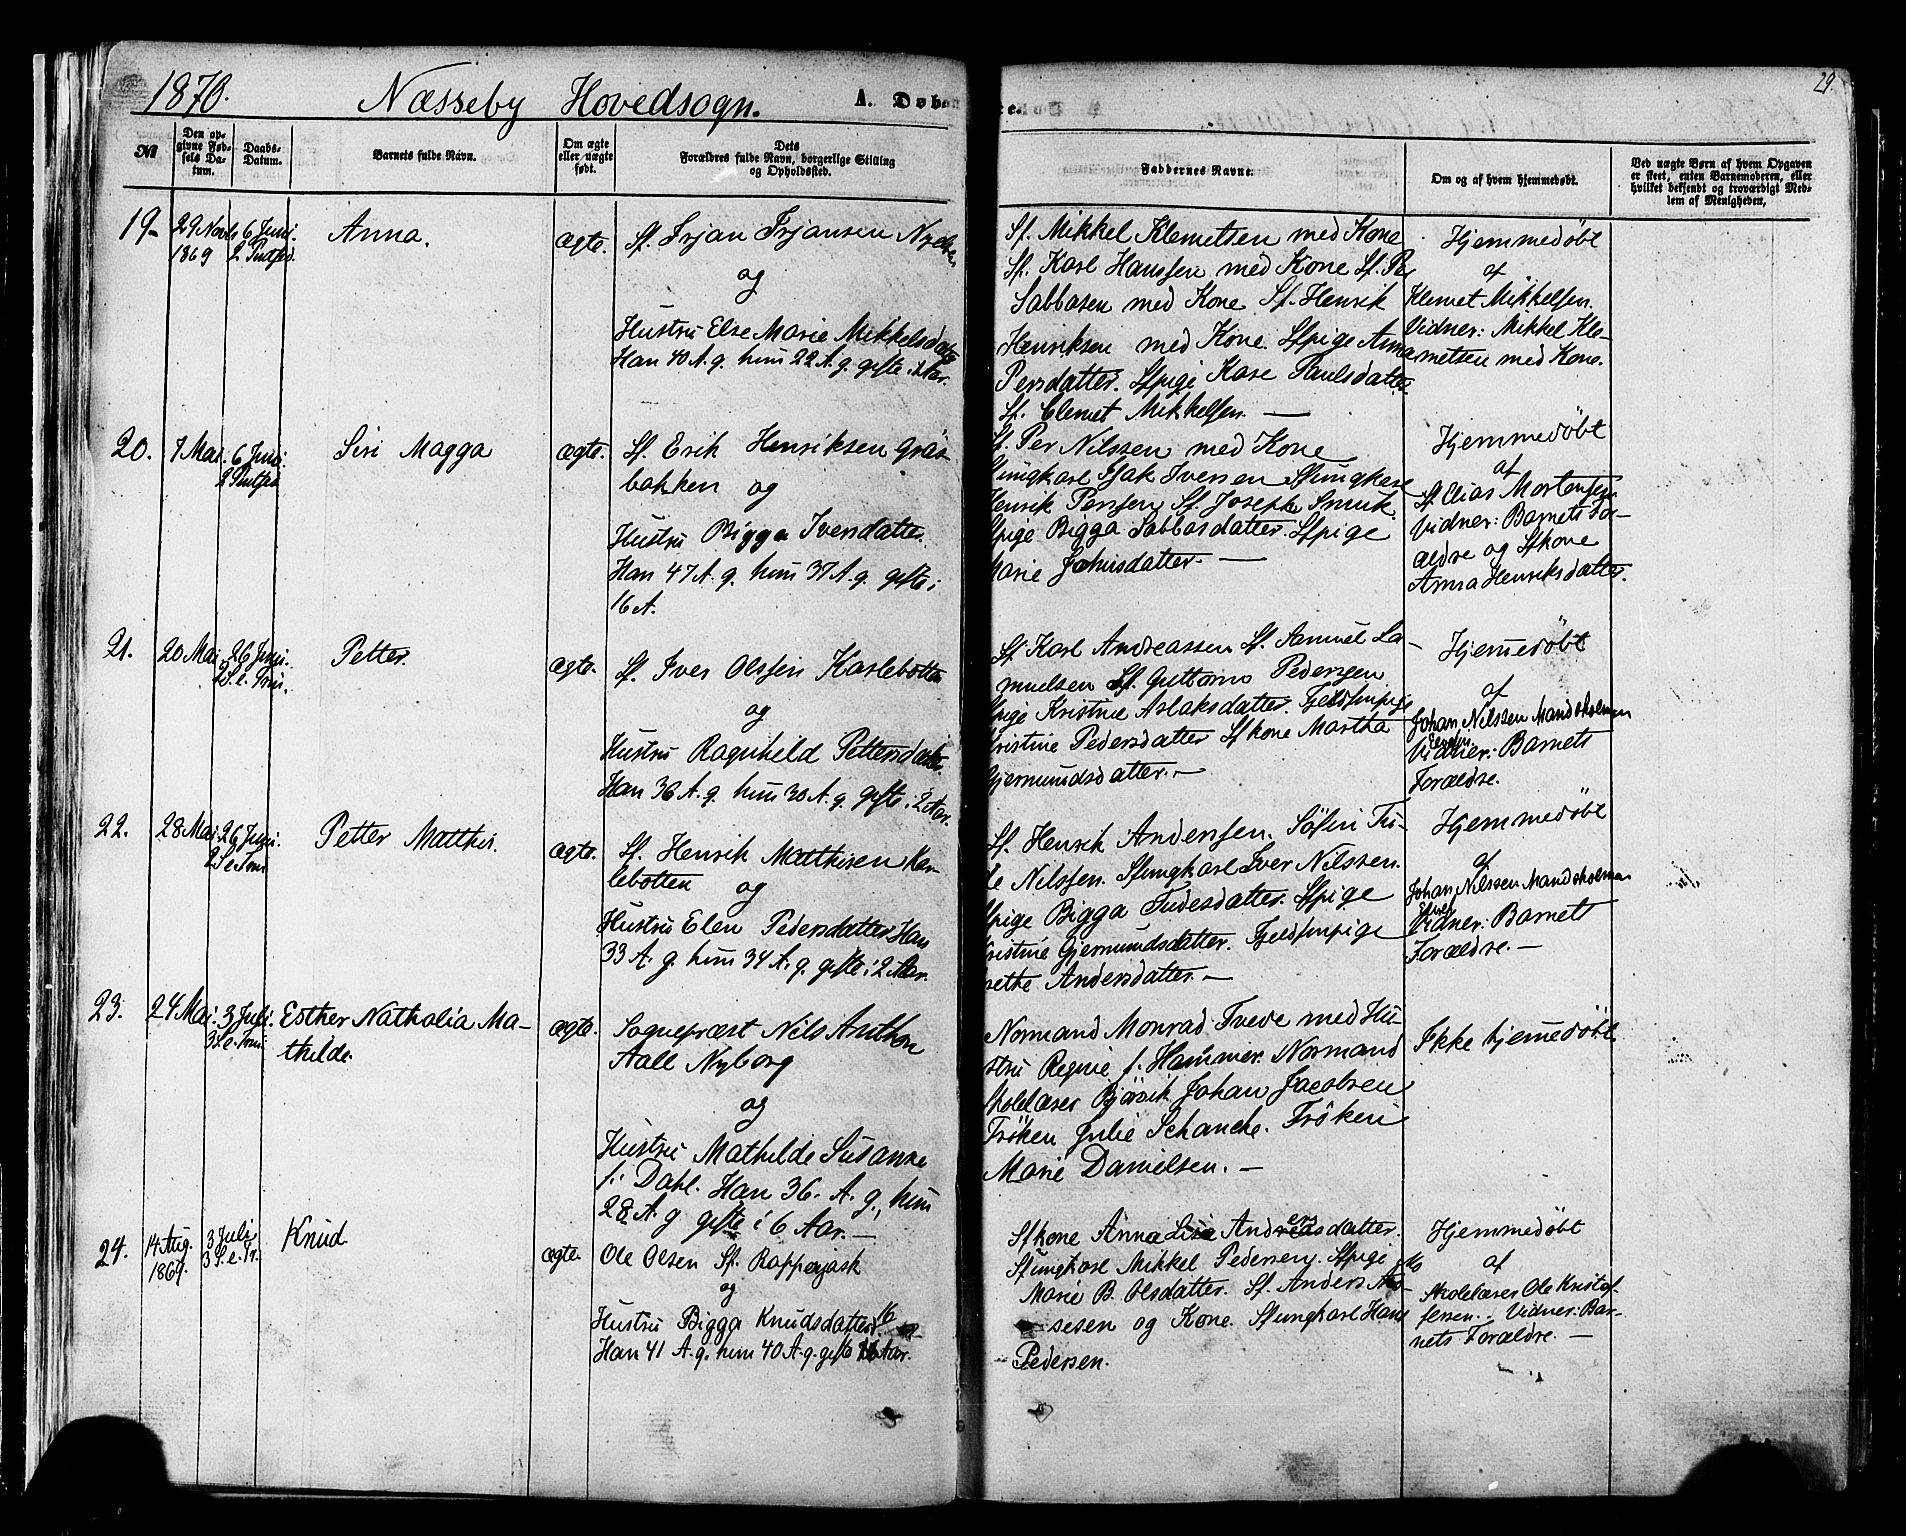 1870. Næsseby Hovedsogn. A. Døbte.
29.
№
Den opgivne Fødsels Datum.
Daabs-Datum.
Barnets fulde Navn.
Om ægte eller uægte født.
Dets Forældres fulde Navn, borgerlige Stilling og Opholdssted.
Faddernes Navne.
Om og af hvem hjemmedøbt.
Ved uægte Børn af hvem Opgaven er skeet, enten Barnemoderen, eller hvilket bekjendt og troværdigt Medlem af Menigheden.
19.
1869
6 Juni.
Anna.
ægte.
og
Hustru Else Marie Mikkelsdatter
Han 40 A. g. hun 22 A. g. gifte i
Sf. Mikkel Klemetsen med Kone
Sf. Karl Hanssen med Kone Sf. Per
Sabbasen med Kone Sf. Henrik
Henriksen med Kone. Sfpige Anna
Persdatter. Sfpige Paulsdatter.
Sf. Clemet Mikkelsen. —
Hjemmedøbt
af
Klemet Mikkelsen.
Vidner: Mikkel Kle-
metsen med Kone.
20.
7 Mai.
6 Juni.
Siri Magga
ægte.
Sf. Erik Henriksen Gras-
bakken og
Hustru Bigga Iversdatter.
Han 47 A. g. hun 37 A. g. gifte i
16 A.
Sf. Per Nilssen med Kone
Sfungkarl Isak Iversen Sfungkarl
Henrik Perssen Sf. Joseph Smuk.
Sfpige Bigga Sabbasdatter. Sfpige
Marie Johnsdatter. —
Hjemmedøbt
af
Sf. Elias Mortensen
Vidner: Barnets For-
ældre og Sfkone
Anna Henriksdatter.
21.
20 Mai
26 Juni.
2 S. e. Trin.
Petter.
ægte.
Sf. Iver Olssen Karlebotten
og
Hustru Ragnheld Pettersdatter
Han 36 A. g. hun 30 A. g. gifte i 2 Aar.
Sf. Karl Andreassen Sf. Samuel Sa-
muelsen Sf. Guttorm Pedersen
Sfpige Kristine Aslaksdatter. Fjeldfinpige
Kristine Pedersdatter Sfkone Martha
Gjermundsdatter. —
Hjemmedøbt
af
Johan Nilssen Mandsholmen
Vidner: Barnets
Forældre.
22.
28 Mai.
26 Juni.
2 S. e. Trin
Petter Matthis.
ægte.
Sf. Henrik Matthisen Kar-
lebotten og
Hustru Elen Pedersdatter Han
33 A. g. hun 34 A. g. gifte i 2 Aar.
Sf. Henrik Anderssen. Søfin Tu-
de Nilssen. Sfungkarl Iver Nilssen.
Sfpige Bigga Tudesdatter. Sfpige
Kristine Gjermundsdatter. Fjeldfinpige
Andersdatter. —
Hjemmedøbt
af
Johan Nilssen Mandsholmen
Vidner: Barnets
Forældre. —
23.
24 Mai.
3 Juli.
3 S. e. Trin
Esther Nathalia Ma-
thilde.
ægte.
Sogneprest Nils Anthon
Aall Nyborg
og
Hustru Mathilde Susanne
f. Dahl. Han 36. A. g., hun
28 A. g gifte i 6 Aar. —
Normand Monrad Tvede med Hu-
stru Regine f. Hammer. Normand
Skolelærer Johan Jacobsen
Frøken Julie Schanche. Frøken
Marie Danielsen. —
Ikke hjemmedøbt
24.
14 Aug.
3 Juli
3 S. e. Tr.
Knud
ægte.
Ole Olsen Sf. Rapperjask
og
Hustru Bigga Knudsdatter
Han 41 A. g. hun 40 A. g. gifte 16 Aar.
Sfkone Anna Lisa Andersdatter.
Sfungkarl Mikkel Pedersen. Sfpige
Marie B. Olsdatter. Sf. Anders Mo-
sesen og Kone. Sfungkarl Hans
Pedersen.
Hjemmedøbt
af
Skolelærer Ole Kristof-
fersen. Vidner: Bar-
nets Forældre. —